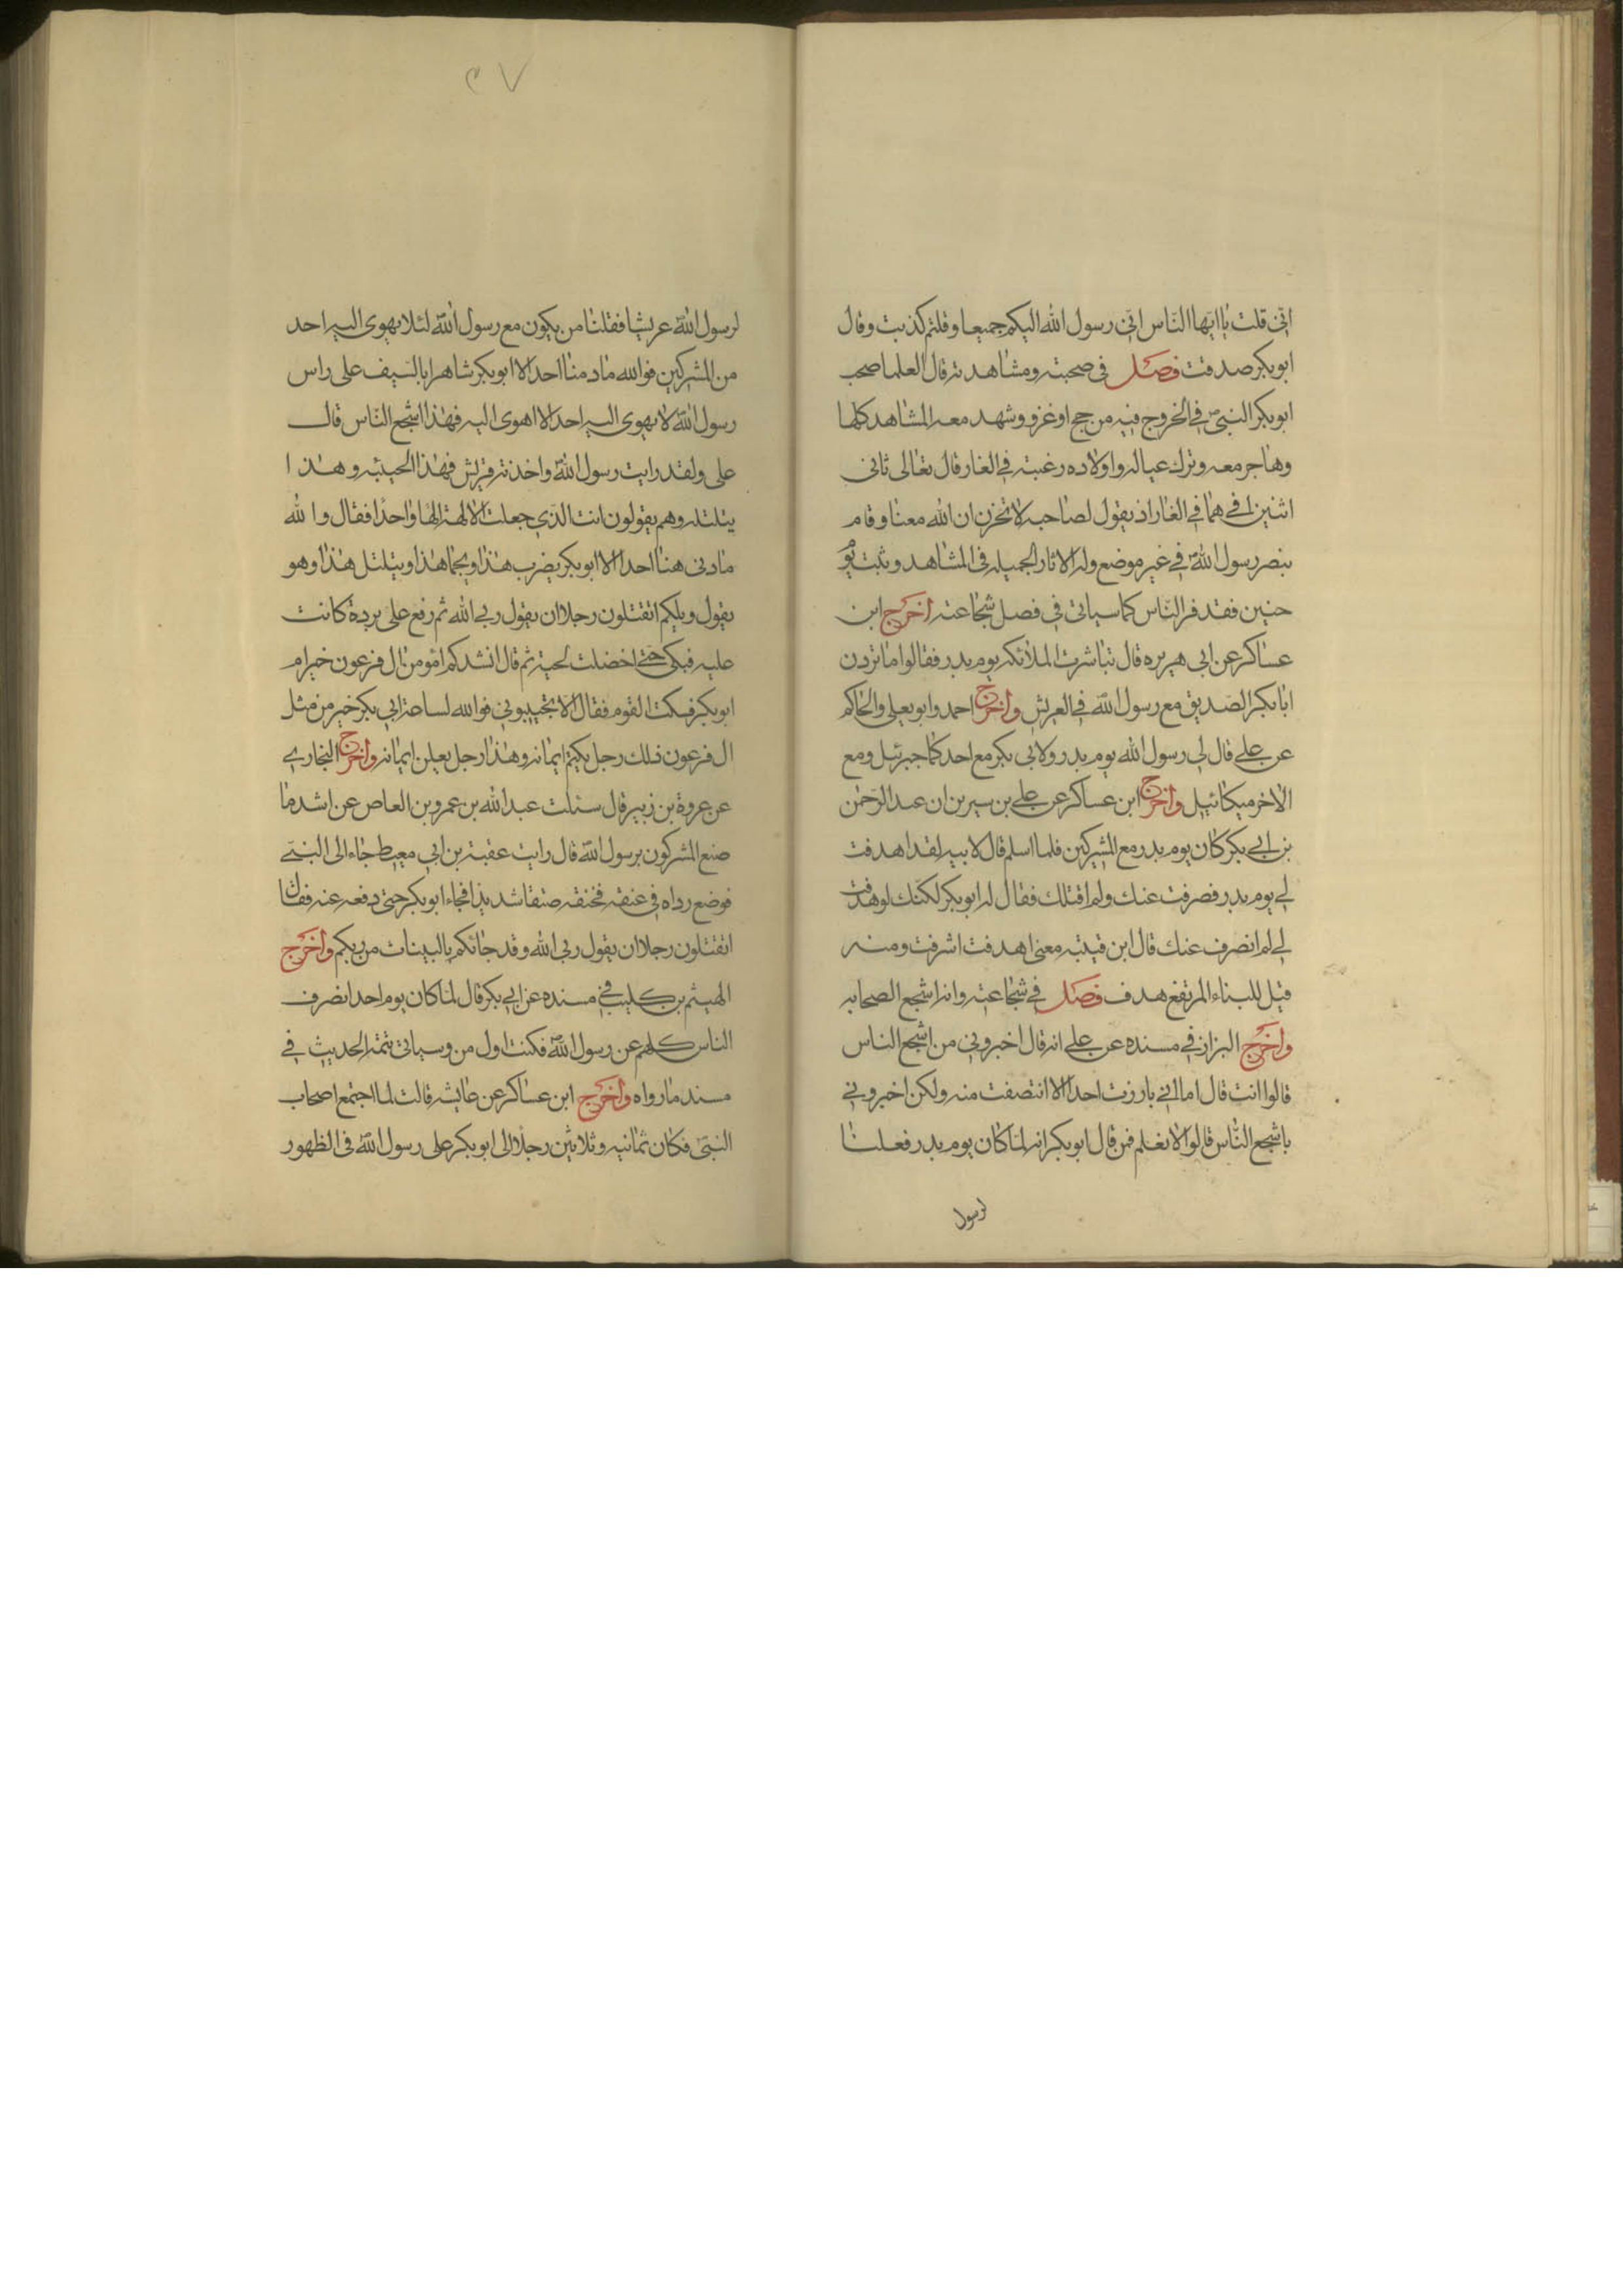 انی قلت یا ایها الناس انی رسول الله الیکم جمیعا وقلتم کذبت وقال
ابوبکر صدقت فصل فی صحبته ومشاهدته قال العلما صحب
ابوبکر النبی فی الخروج فیه من حج او غزو وشهد معه المشاهد کلها
وهاجر معه وترک عیاله واولاده رغبته فی الغار قال تعالی ثانی
اثنین اذ هما فی الغار اذ یقول لصاحبه لا تحزن ان الله معنا وقام
بنصر رسول الله فی غیر موضع وله الاثار الجمیله فی المشاهد وثبت یوم
حنین فقد فر الناس کما سیاتی فی فصل شجاعته اخرج ابن
عساکر عن ابی هریره قال تباشرت الملائکه یوم بدر فقالوا ما تردن
ابابکر الصدیق مع رسول الله فی العریش واخرج احمد وابو یعلی والحاکم
عن علی قال لی رسول الله یوم بدر ولابی بکر مع احد کما جبرئیل ومع
الاخر میکائیل واخرج ابن عساکر عن علی بن سیرین ان عبد الرحمن
بن ابی بکر کان یوم بدر مع المشرکین فلما اسلم قال لابیه لقد اهدفت
لی یوم بدر فصرفت عنک ولم اقتلک فقال له ابوبکر لکنک لو هدفت
لی لم انصرف عنک قال ابن قتیبه معنی اهدفت اشرفت ومنه
قیل للبناء المرتفع هدف فصل فی شجاعته وانه اشجع الصحابه
واخرج البزار فی مسنده عن علی انه قال اخبرونی من اشجع الناس
قالوا انت قال اما انی بارزت احدا الا انتصفت منه ولکن اخبرونی
باشجع الناس قالوا لا نعلم فمن قال ابوبکر انه لما کان یوم بدر فعلنا
لرسول
۳۷
لرسول الله عریشا فقلنا من یکون مع رسول الله لئلا یهوی الیه احد
من المشرکین فوالله ما دمنا احد الا ابوبکر شاهرا بالسیف علی راس
رسول الله لا یهوی الیه احد الا اهوی الیه فهذا اشجع الناس قال
علی ولقد رایت رسول الله واخذته قریش فهذا الحیبئه وهذا
یتلتله وهم یقولون انت الذی جعلت الالهة الها واحدا فقال والله
مادنی هنا احد الا ابوبکر یضرب هذا ویجا هذا ویتلتل هذا وهو
یقول ویلکم اتقتلون رجلا ان یقول ربی الله ثم رفع علی بردة کانت
علیه فبکی حتی اخضلت لحیته ثم قال انشدکم امؤمن ال فرعون خیر ام
ابوبکر فسکت القوم فقال الا تجیبونی فوالله لساعة ابی بکر خیر من مثل
ال فرعون ذلک رجل یکتم ایمانه وهذا رجل یعلن ایمانه واخرج البخاری
عن عروة بن زبیر قال سئلت عبدالله بن عمرو بن العاص عن اشد ما
صنع المشرکون برسول الله قال رایت عقبة بن ابی معیط جاء الی النبی
فوضع رداه فی عنقه فخنقه صنقا شدیدا فجاء ابوبکر حتی دفعه عنه فقال
اتقتلون رجلا ان یقول ربی الله وقد جائکم بالبینات من ربکم واخرج
الهیثم بن کلیب فی مسنده عن ابی بکر قال لما کان یوم احد انصرف
الناس کلهم عن رسول الله فکنت اول من وسیاتی تتمة الحدیث فی
مسند ما رواه واخرج ابن عساکر عن عایشه قالت لما اجتمع اصحاب
النبی فکان ثمانیه وثلاثین رجلا الی ابوبکر علی رسول الله فی الظهور